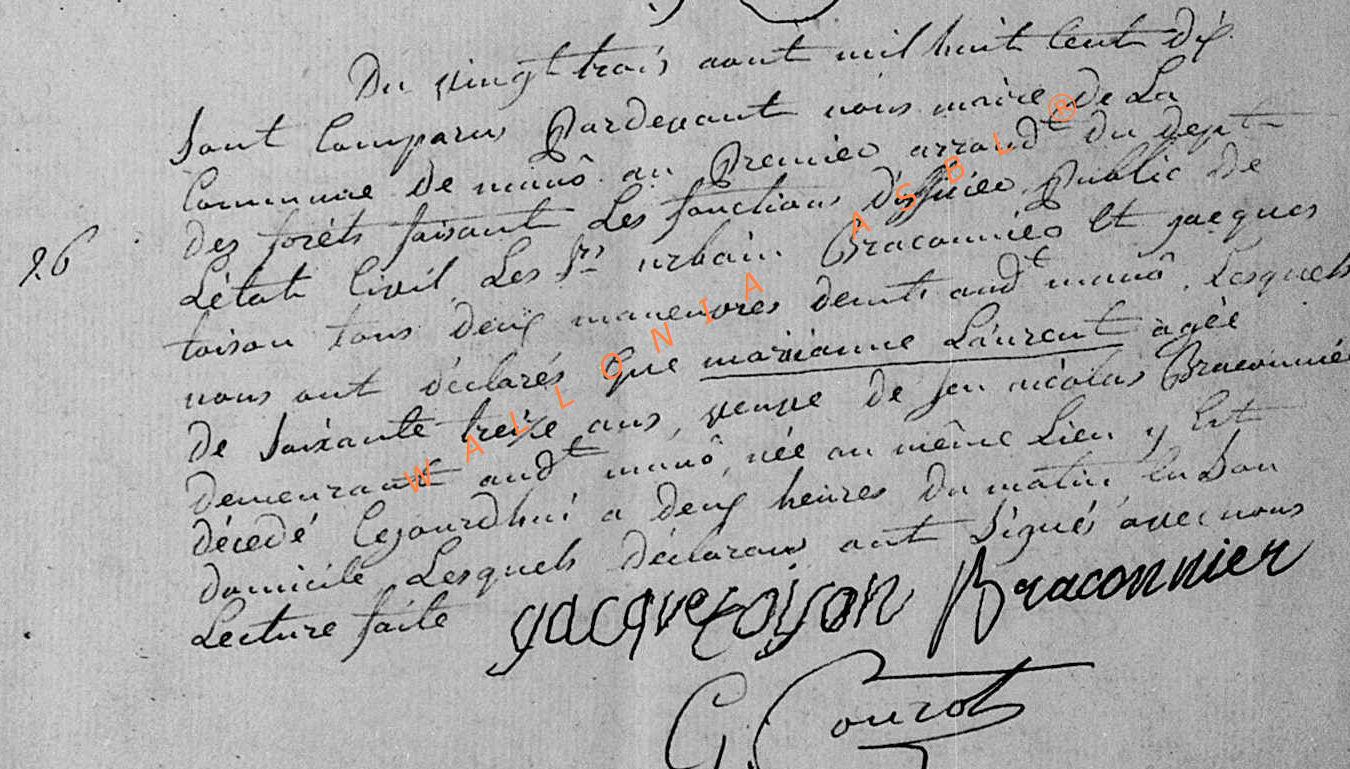 Du vingt trois aout mil huit Cent dix
Sont Comparus Pardevant nous maire de La
Commune deminô au Premier arrond.t du dept
des forêts faisant Les fonctions D'officier Public de
26
L'état Civil Les Srs urbain Braconnier et jacques
toison tous deux maneuvres demts aud.t minô, Lesquels
nous ont déclarés Que marianne Laurent agée
De soixante treize ans, veuve de feu nicolas Braconnier
demeurant aud.t minô, née au même Lieu y Est
décedé Cejourdhui a deux heures du matin En Son
domicile Lesquels déclarans ont Signés avec nous
Lecture faite
jacque toison Braconnier
G. Courot
WALLONIA ASBL ®